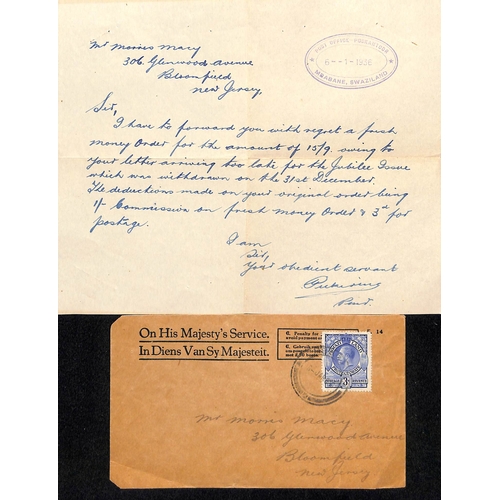 Mr Morris Macy
306 Glenwood Avenue
Bloomfield
New Jersey.
6--1-1936
MBABANE, SWAZILAND
Sir,
I have to forward you with regret a fresh
money Order for the amount of 15/9. owing to
your letter arriving too late for the Jubilee Issue
which was withdrawn on the 31st December.
The deductions made on your original order being
1/- Commission on fresh money Order & 3d for
postage.
I am
Sir,
Your obedient servant
Pickering
On His Majesty's Service.
In Diens Van Sy Majesteit.
C. Penalty for
14
3d
Mr Morris Macy
306 Glenwood Avenue
Bloomfield
New Jersey